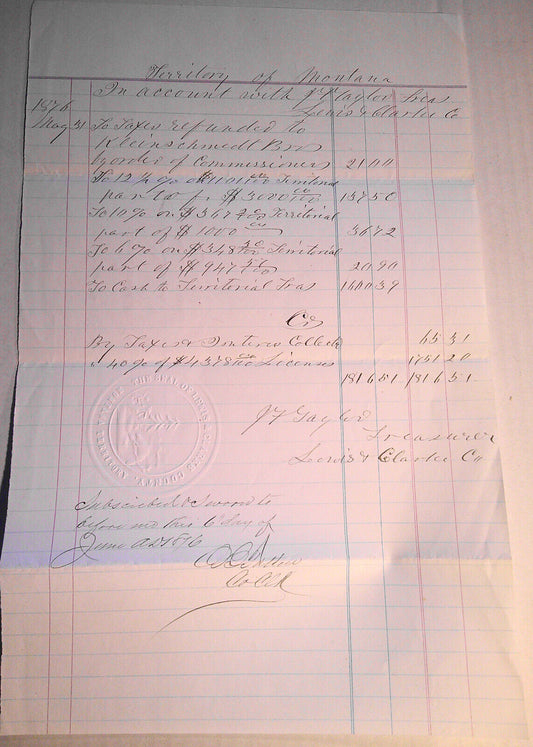 Territory of Montana
In account with J F Taylor Treas
1876 Lewis & Clarke Co
May 31 To Taxes refunded to
Kleinschmidt Bros
by order of Commissioners 21 00
To 12 1/2 % on $1101 00/100 Territorial
part of $3000 00/100 137 50
To 10 % on $367 20/100 Territorial
part of $1000 00 36 72
To 6 % on $348 30/100 Territorial
part of $947 20 90
To Cash to Territorial Treas 1600 39
Cr
By Taxes & Interest Collected 65 31
" 40 % of $4378 00/100 Licenses 1751 20
1816 51 1816 51
J F Taylor
Treasurer
Lewis & Clarke Co
THE SEAL OF LEWIS & CLARKE COUNTY MONTANA TERRITORY
Subscribed & Sworn to
before me this 6 day of
June AD 1876
Co Clk